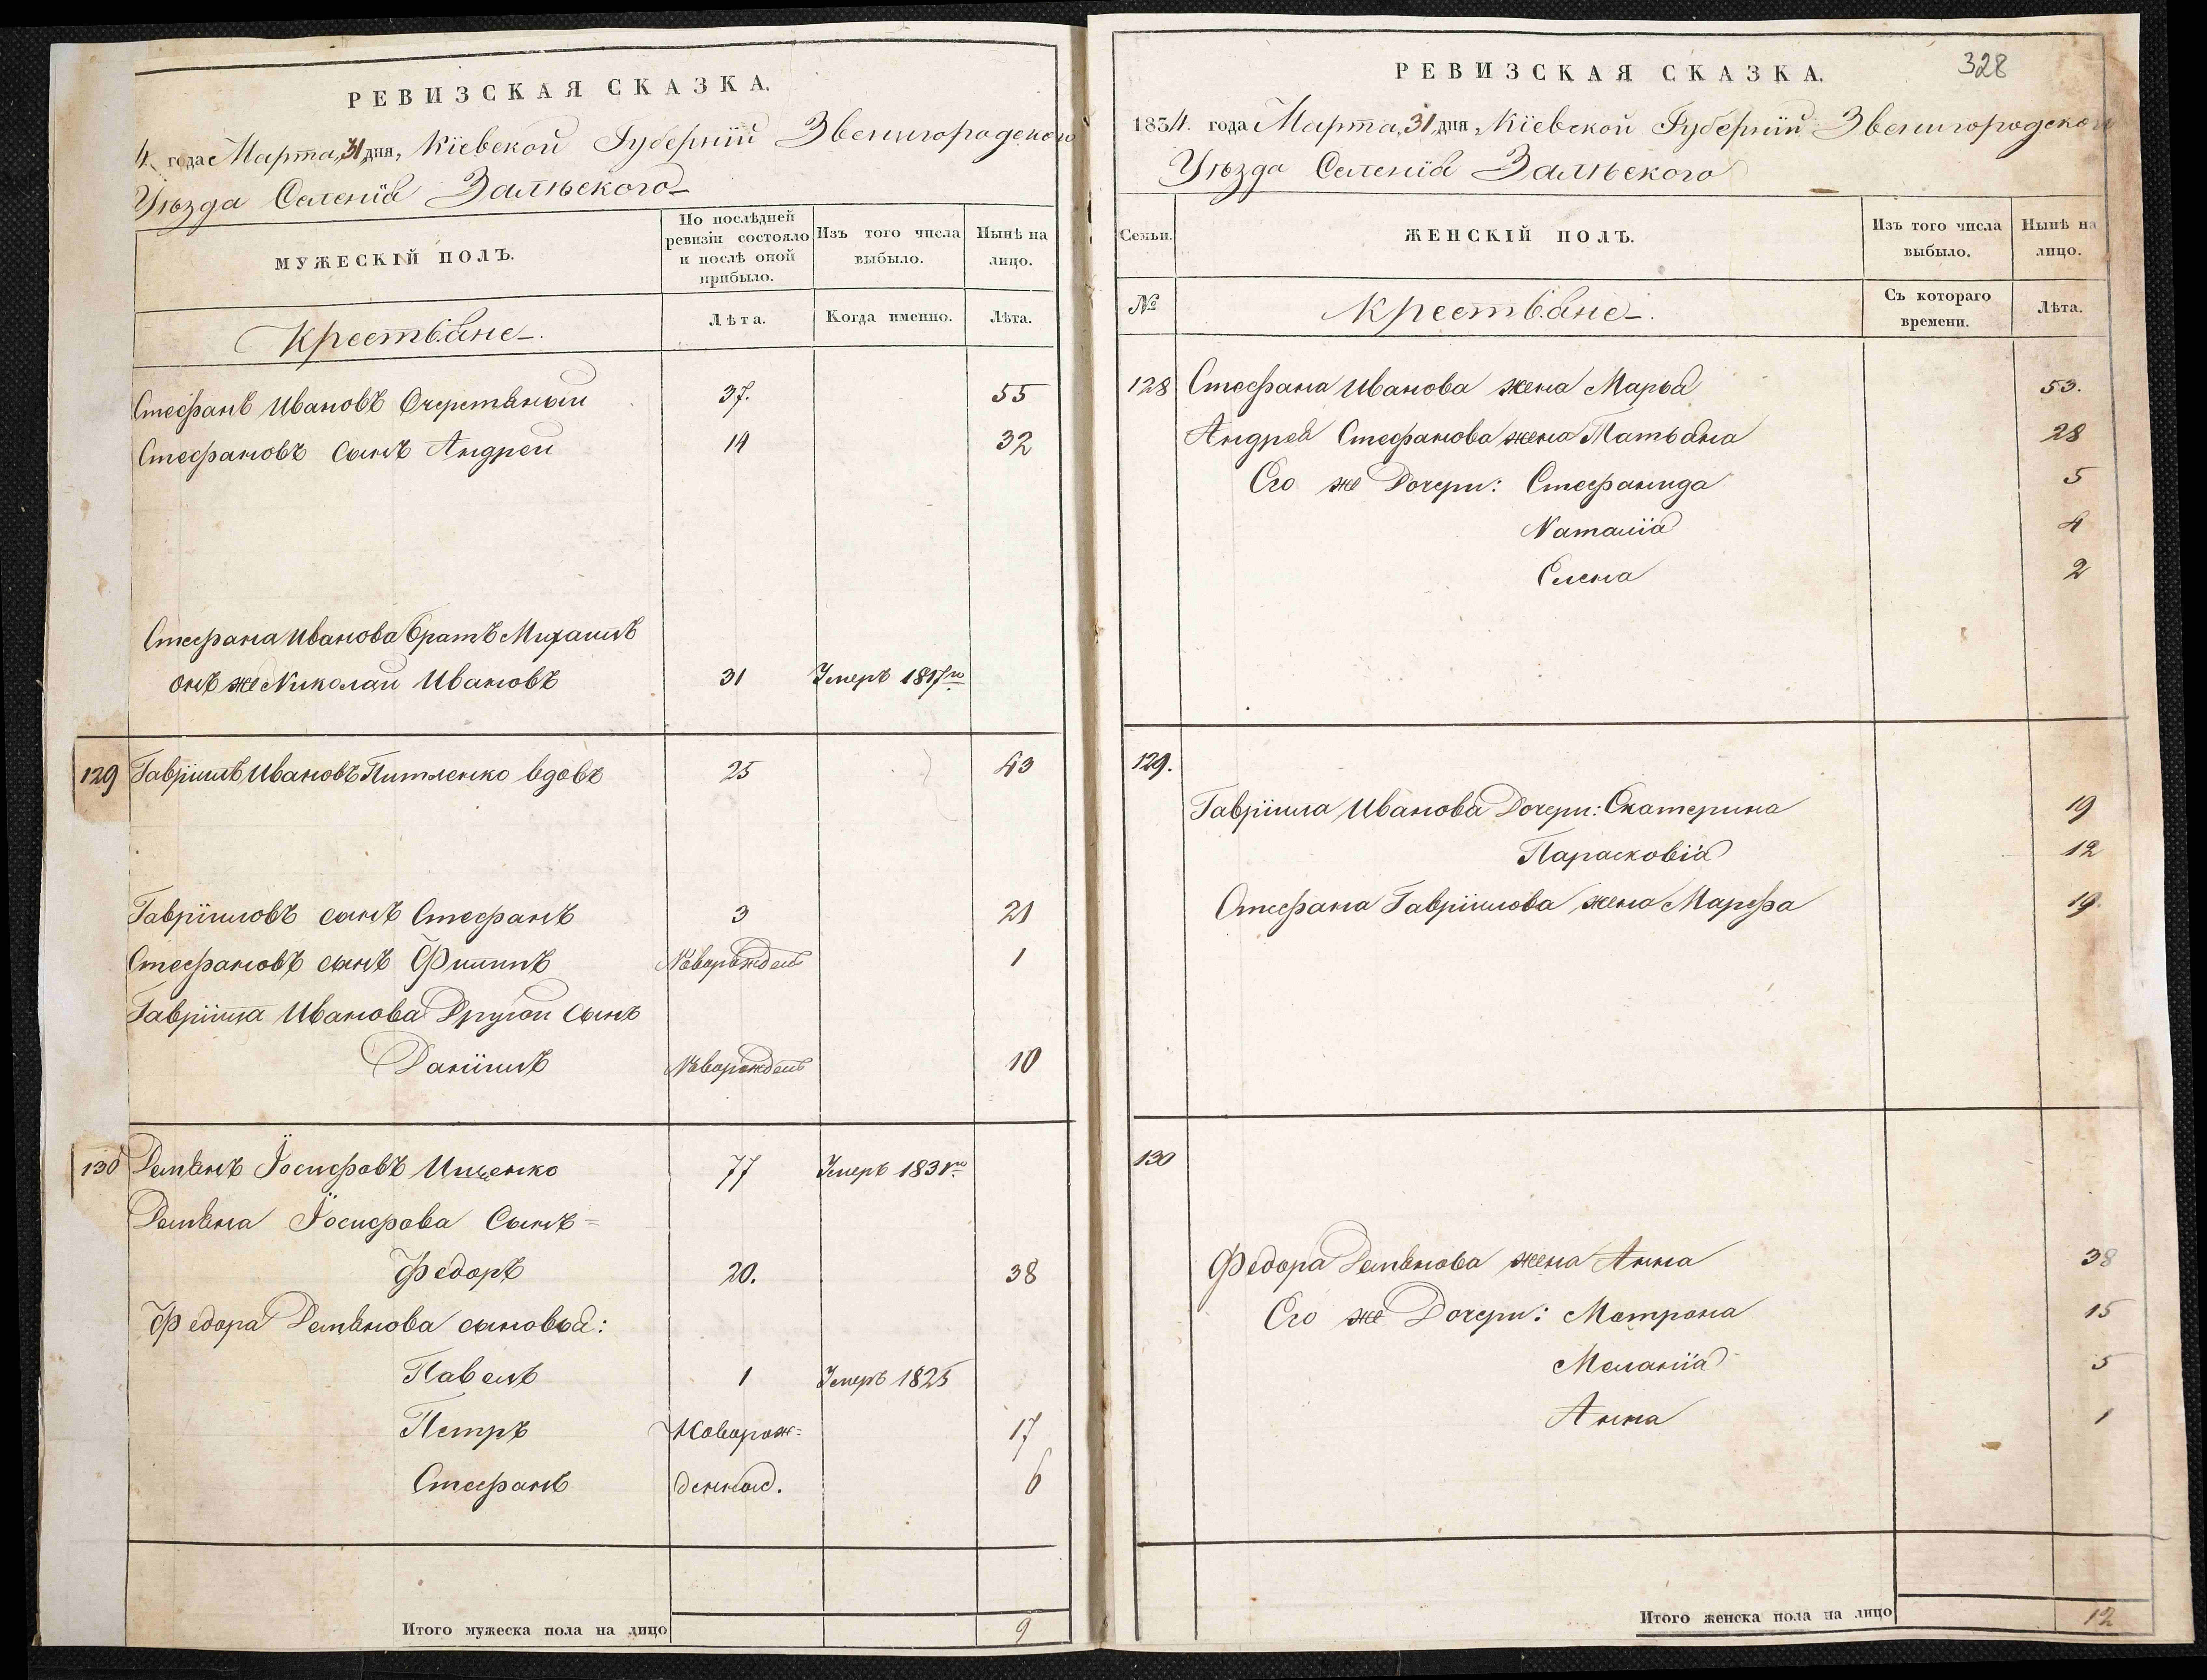 РЕВИЗСКАЯ СКАЗКА.
4 года Марта, 31 дня, Кіевской Губерніи Звенигородского
Уѣзда Селенія Залѣского
МУЖЕСКІЙ ПОЛЪ.
По послѣдней ревизіи состояло и послѣ оной прибыло.
Изъ того числа выбыло.
Нынѣ на лицо.
Крестьяне
Лѣта.
Когда именно.
Лѣта.
Стефанъ Ивановъ Очеретяный 37. 55
Стефановъ сынъ Андрей 14 32
Стефана Иванова братъ Михаилъ
онъ же Николай Ивановъ 31 Умеръ 1817го
129 Гавріилъ Ивановъ Питленко вдовъ 25 43
Гавріиловъ сынъ Стефанъ 3 21
Стефановъ сынъ Филипъ Новорожденъ 1
Гавріила Иванова Другой сынъ
Даніилъ Новорожденъ 10
130 Демьянъ Іосифовъ Ищенко 77 Умеръ 1831го
Демьяна Іосифова Сынъ=
Федоръ 20. 38
Федора Демьянова сыновья:
Павелъ 1 Умеръ 1825
Петръ Новорож= 17
Стефанъ денные. 6
Итого мужеска пола на лицо 9
328
РЕВИЗСКАЯ СКАЗКА.
1834. года Марта, 31 дня, Кіевской Губерніи Звенигородского
Уѣзда Селенія Залѣского
Семьи.
ЖЕНСКІЙ ПОЛЪ.
Изъ того числа выбыло.
Нынѣ на лицо.
№
Крестьяне.
Съ котораго времени.
Лѣта.
128 Стефана Иванова жена Марья 53.
Андрея Стефанова жена Татьяна 28
Его же Дочери: Стефанида 5
Наталія 4
Елена 2
129.
Гавріила Иванова Дочери: Екатерина 19
Парасковія 12
Стефана Гавріилова жена Марфа 19.
130
Федора Демьянова жена Анна 38
Его же Дочери: Матрона 15
Меланія 5
Анна 1
Итого женска пола на лицо 12